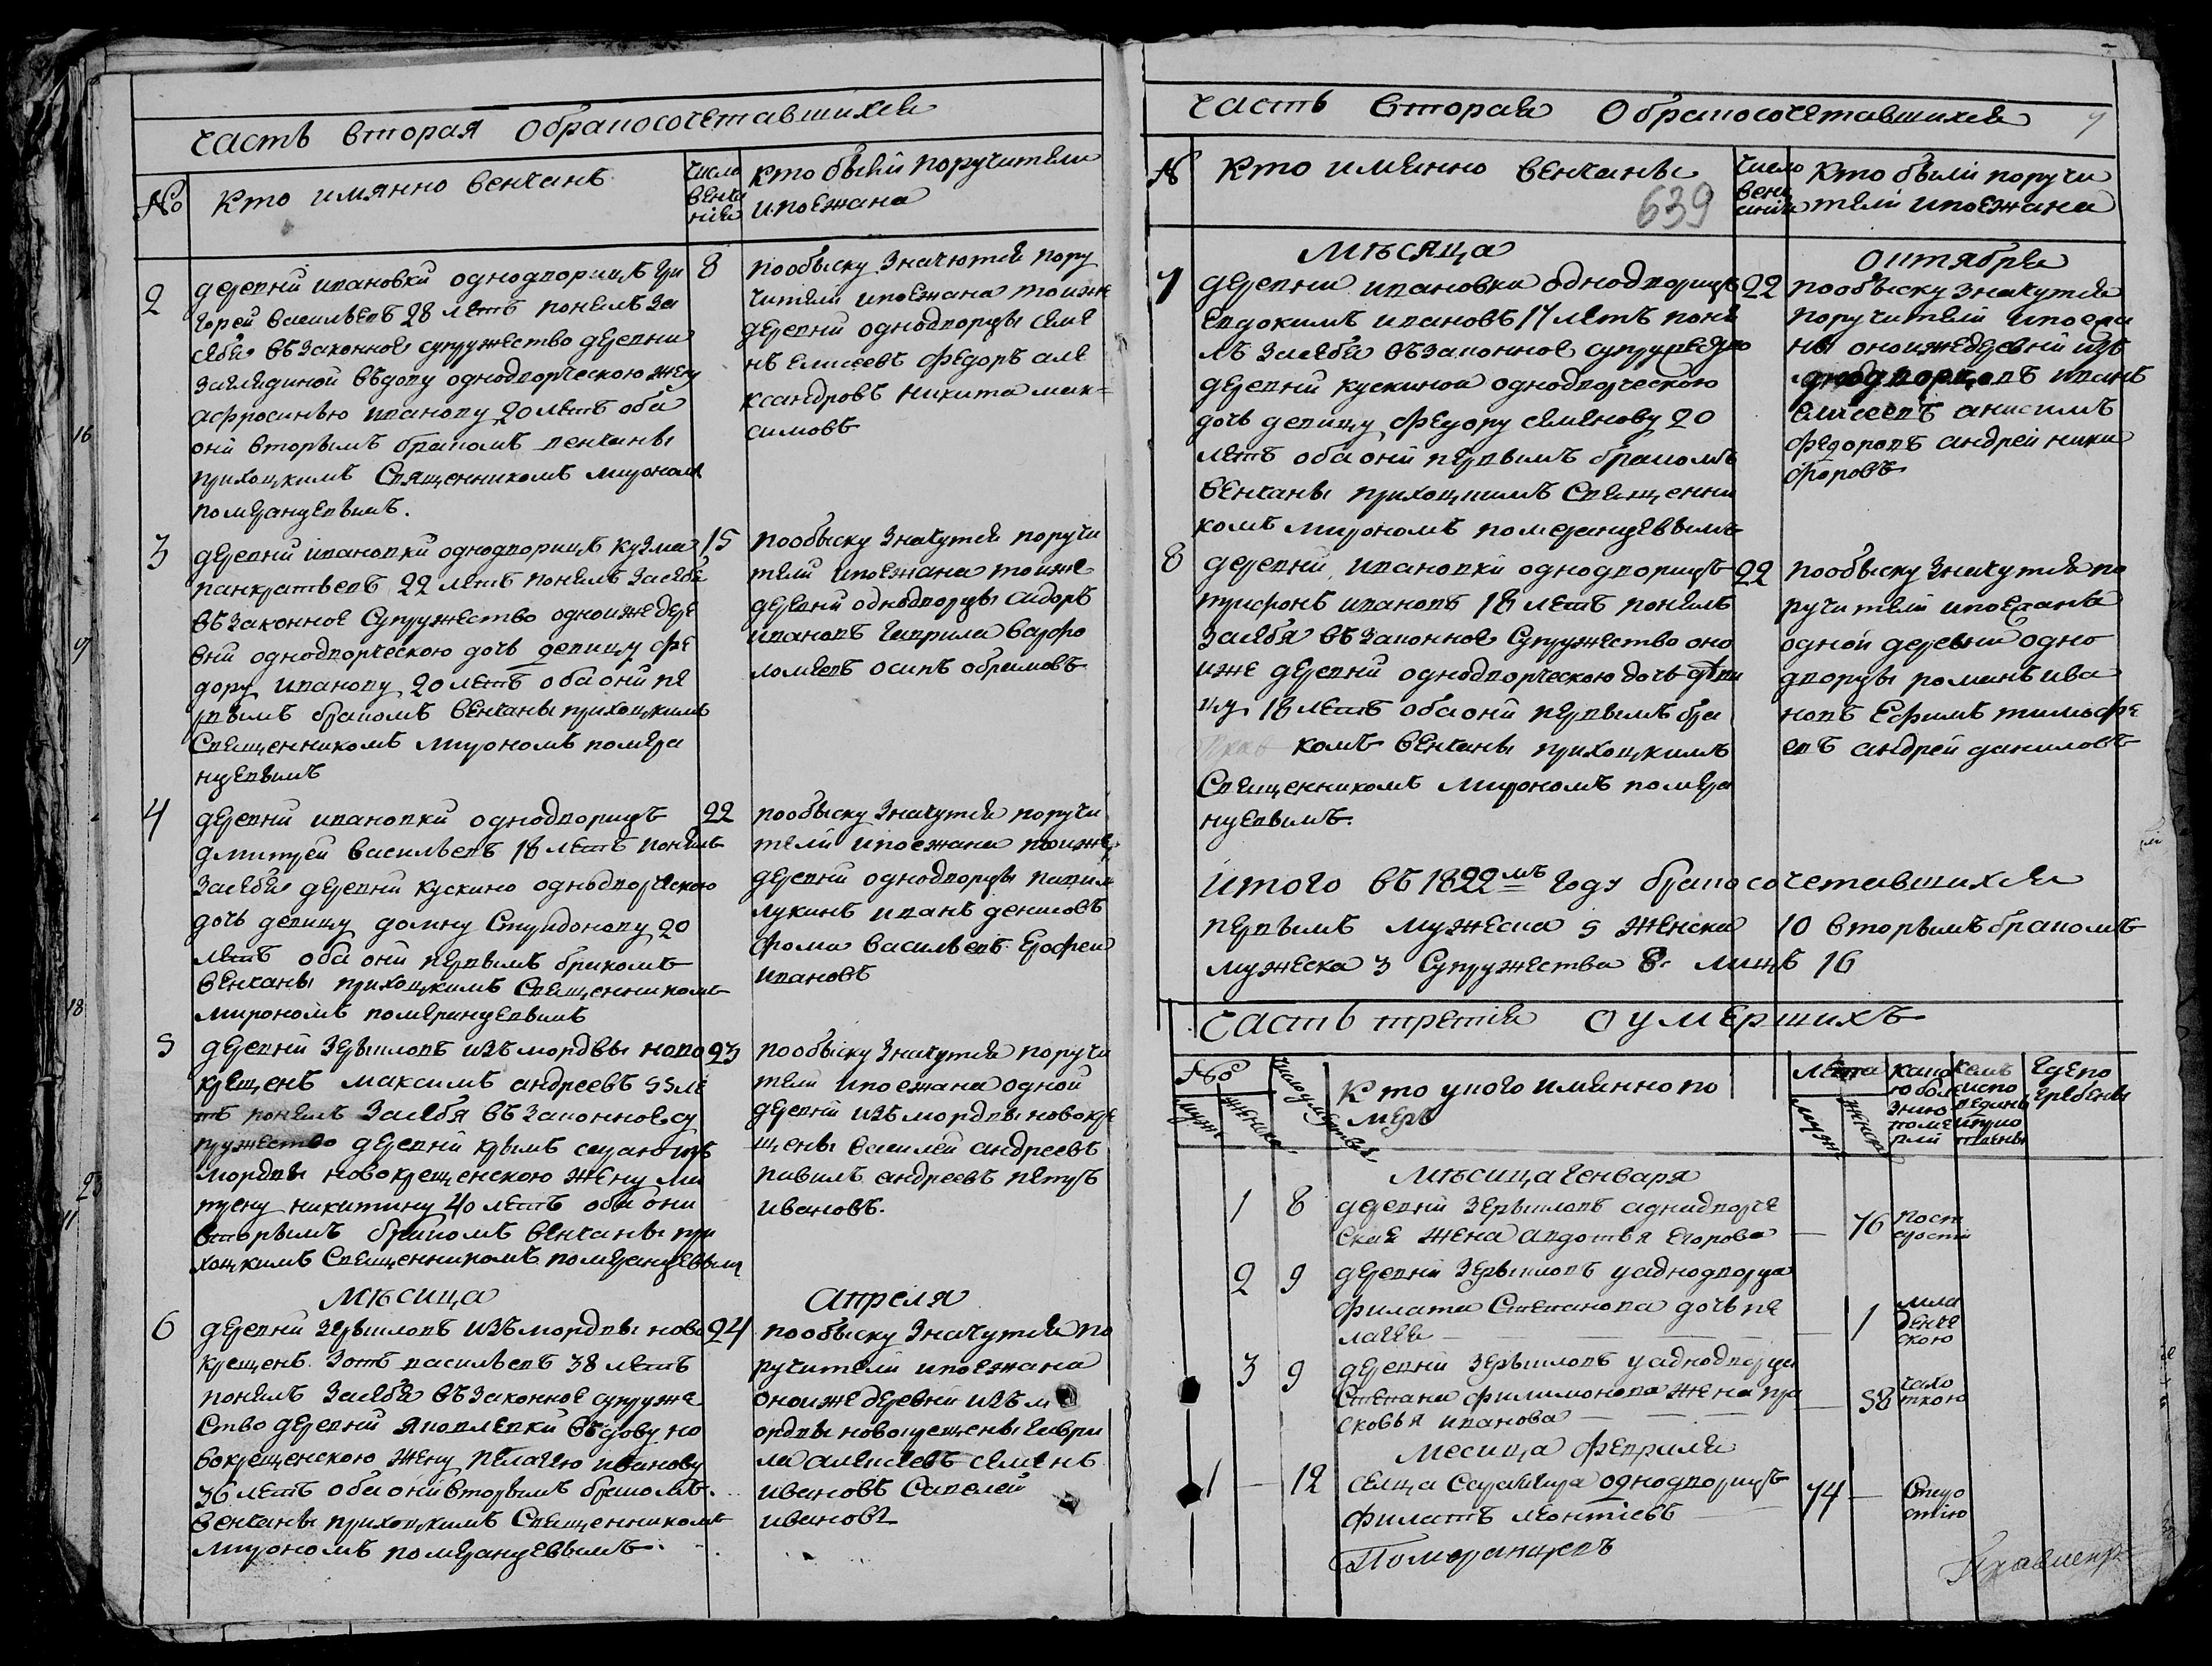 часть вторая обракосочетавшихся
No
кто имянно венчанъ
число
венча
ния
кто были поручители
и поежана
2
деревни ивановки однодворицъ гри
горей васильевъ 28 летъ понелъ за
себя въ законное супружество деревни
вьдову однодворческою жену
афросинью иванову 20 летъ оба
они вторымъ бракомъ венчаны
приходкимъ Священникомъ мирономъ
померанцевымъ.
8
по обыску значютея пору
чители и поежана тоиже
деревни однодворцы семе
нъ елисеевъ федоръ але
ксандровъ никита мак=
симовъ
3
деревни ивановки однодворицъ кузма
панкратьевъ 22 летъ понелъ засебе
въ законное Супружество одноиже дере
вни однодворческою дочь девицу фе
дору иванову 20 летъ оба они пе
рвымъ бракомъ венчаны приходкимъ
Свещенникомъ мирономъ помера
нцевымъ
15
по обыску значутея поручи
тели и поежана тоиже
деревни однодворцы сидоръ
ивановъ гаврила варфо
ломеевъ осипъ обрамовъ
4
деревни ивановки однодворицъ
дмитрей васильевъ 18 летъ понелъ
засебя деревни кускино однодворческою
дочь девицу домну Спиридонову 20
летъ оба они первымъ бракомъ
венчаны приходкимъ Свещенникомъ
мирономъ померанцевымъ
22
по обыску значутея поручи
тели и поежана тоиже
деревни однодворцы
лукинъ иванъ денисовъ
фома васильевъ Ерофеи
ивановъ
5
деревни зерыкловъ изъ мордвы ново
крещенъ максимъ андреевъ 55 ле
тъ понелъ засебя въ законное су
пружество деревни изъ
мордвы новокрещенскою жену ма
трену никитину 40 летъ оба они
вторымъ бракомъ венчаны при
ходкимъ Свещенникомъ померанцевымъ
23
по обыску значутея поручи
тели и поежана одной
деревни изъ мордвы новокре
щены василей андреевъ
павилъ андреевъ петръ
ивановъ.
мѣсица
апреля
6
деревни зерыкловъ изъ мордвы ново
крещенъ Зотъ васильевъ 38 летъ
понелъ засебя въ законное супруже
ство деревни яковлевки въдову но
вокрещенскою жену пелагею иванову
36 летъ оба они вторымъ бракомъ.
венчаны приходкимъ Свещенникомъ
мирономъ померанцевымъ.
24
по обыску значутея по
ручители и поежана
оноиже деревни изъ м
ордвы новокрещены гаври
ла алексеевъ семенъ
ивановъ Савелей
ивановъ
часть вторая обракосочетавшихея
No
кто имянно венчаны
639
число
венч
ания
кто были поручи
тели и поежана
мѣсяца
октябрея
7
деревни ивановки однодворицъ
евдокимъ ивановъ 17 летъ поне
лъ засебя въ законное супружество
деревни кускинои однодворческою
дочь девицу федору семенову 20
летъ оба они первымъ бракомъ
венчаны приходкимъ Свещенни
комъ мирономъ померанцевымъ
22
по обыску значутея
поручители и поежа
ны оноиже деревни изъ
однодворцовъ иванъ
елисеевъ анисимъ
федоровъ андрей ники
форовъ
8
деревни ивановки однодворицъ
трифонъ ивановъ 18 летъ понелъ
засебя въ законное Супружество оно
иже деревни однодворческою дочь деви
цу 18 летъ оба они первымъ бра
комъ венчаны приходкимъ
Свещенникомъ мирономъ помера
нцевымъ.
22
по обыску значутея по
ручители и поежана
одной деревни одно
дворцы романъ ива
новъ Ефимъ тимофе
евъ андрей даниловъ
итого въ 1822мъ году бракосочетавшихея
первымъ мужеска 5 женска 10 вторымъ бракомъ
мужеска 3 Супружества 8. лицъ 16
часть третия о умершихъ
No
мужс
женска
число умертвия
кто у кого имянно по
меръ
лета
мужс
женск
како
ю бол
знию
поме
рли
кемъ
испо
ведины
и прио
щены
где по
гребены
мѣсица генваря
1 8
деревни зерыкловъ аднадворче
ская жена авдотья Егорова
76
пост
арости
2 9
деревни зерыкловъ у аднодворца
филата Степанова дочь пе
лагея
1
мла
денче
скою
3 9
деревни зерыкловъ у аднодворца
Степана филимонова жена пра
сковья иванова
58
чахо
ткою
месица февраля
1 — 12
селца однодворицъ
филатъ леонтиевъ
74
Старо
стию
Померанцевъ